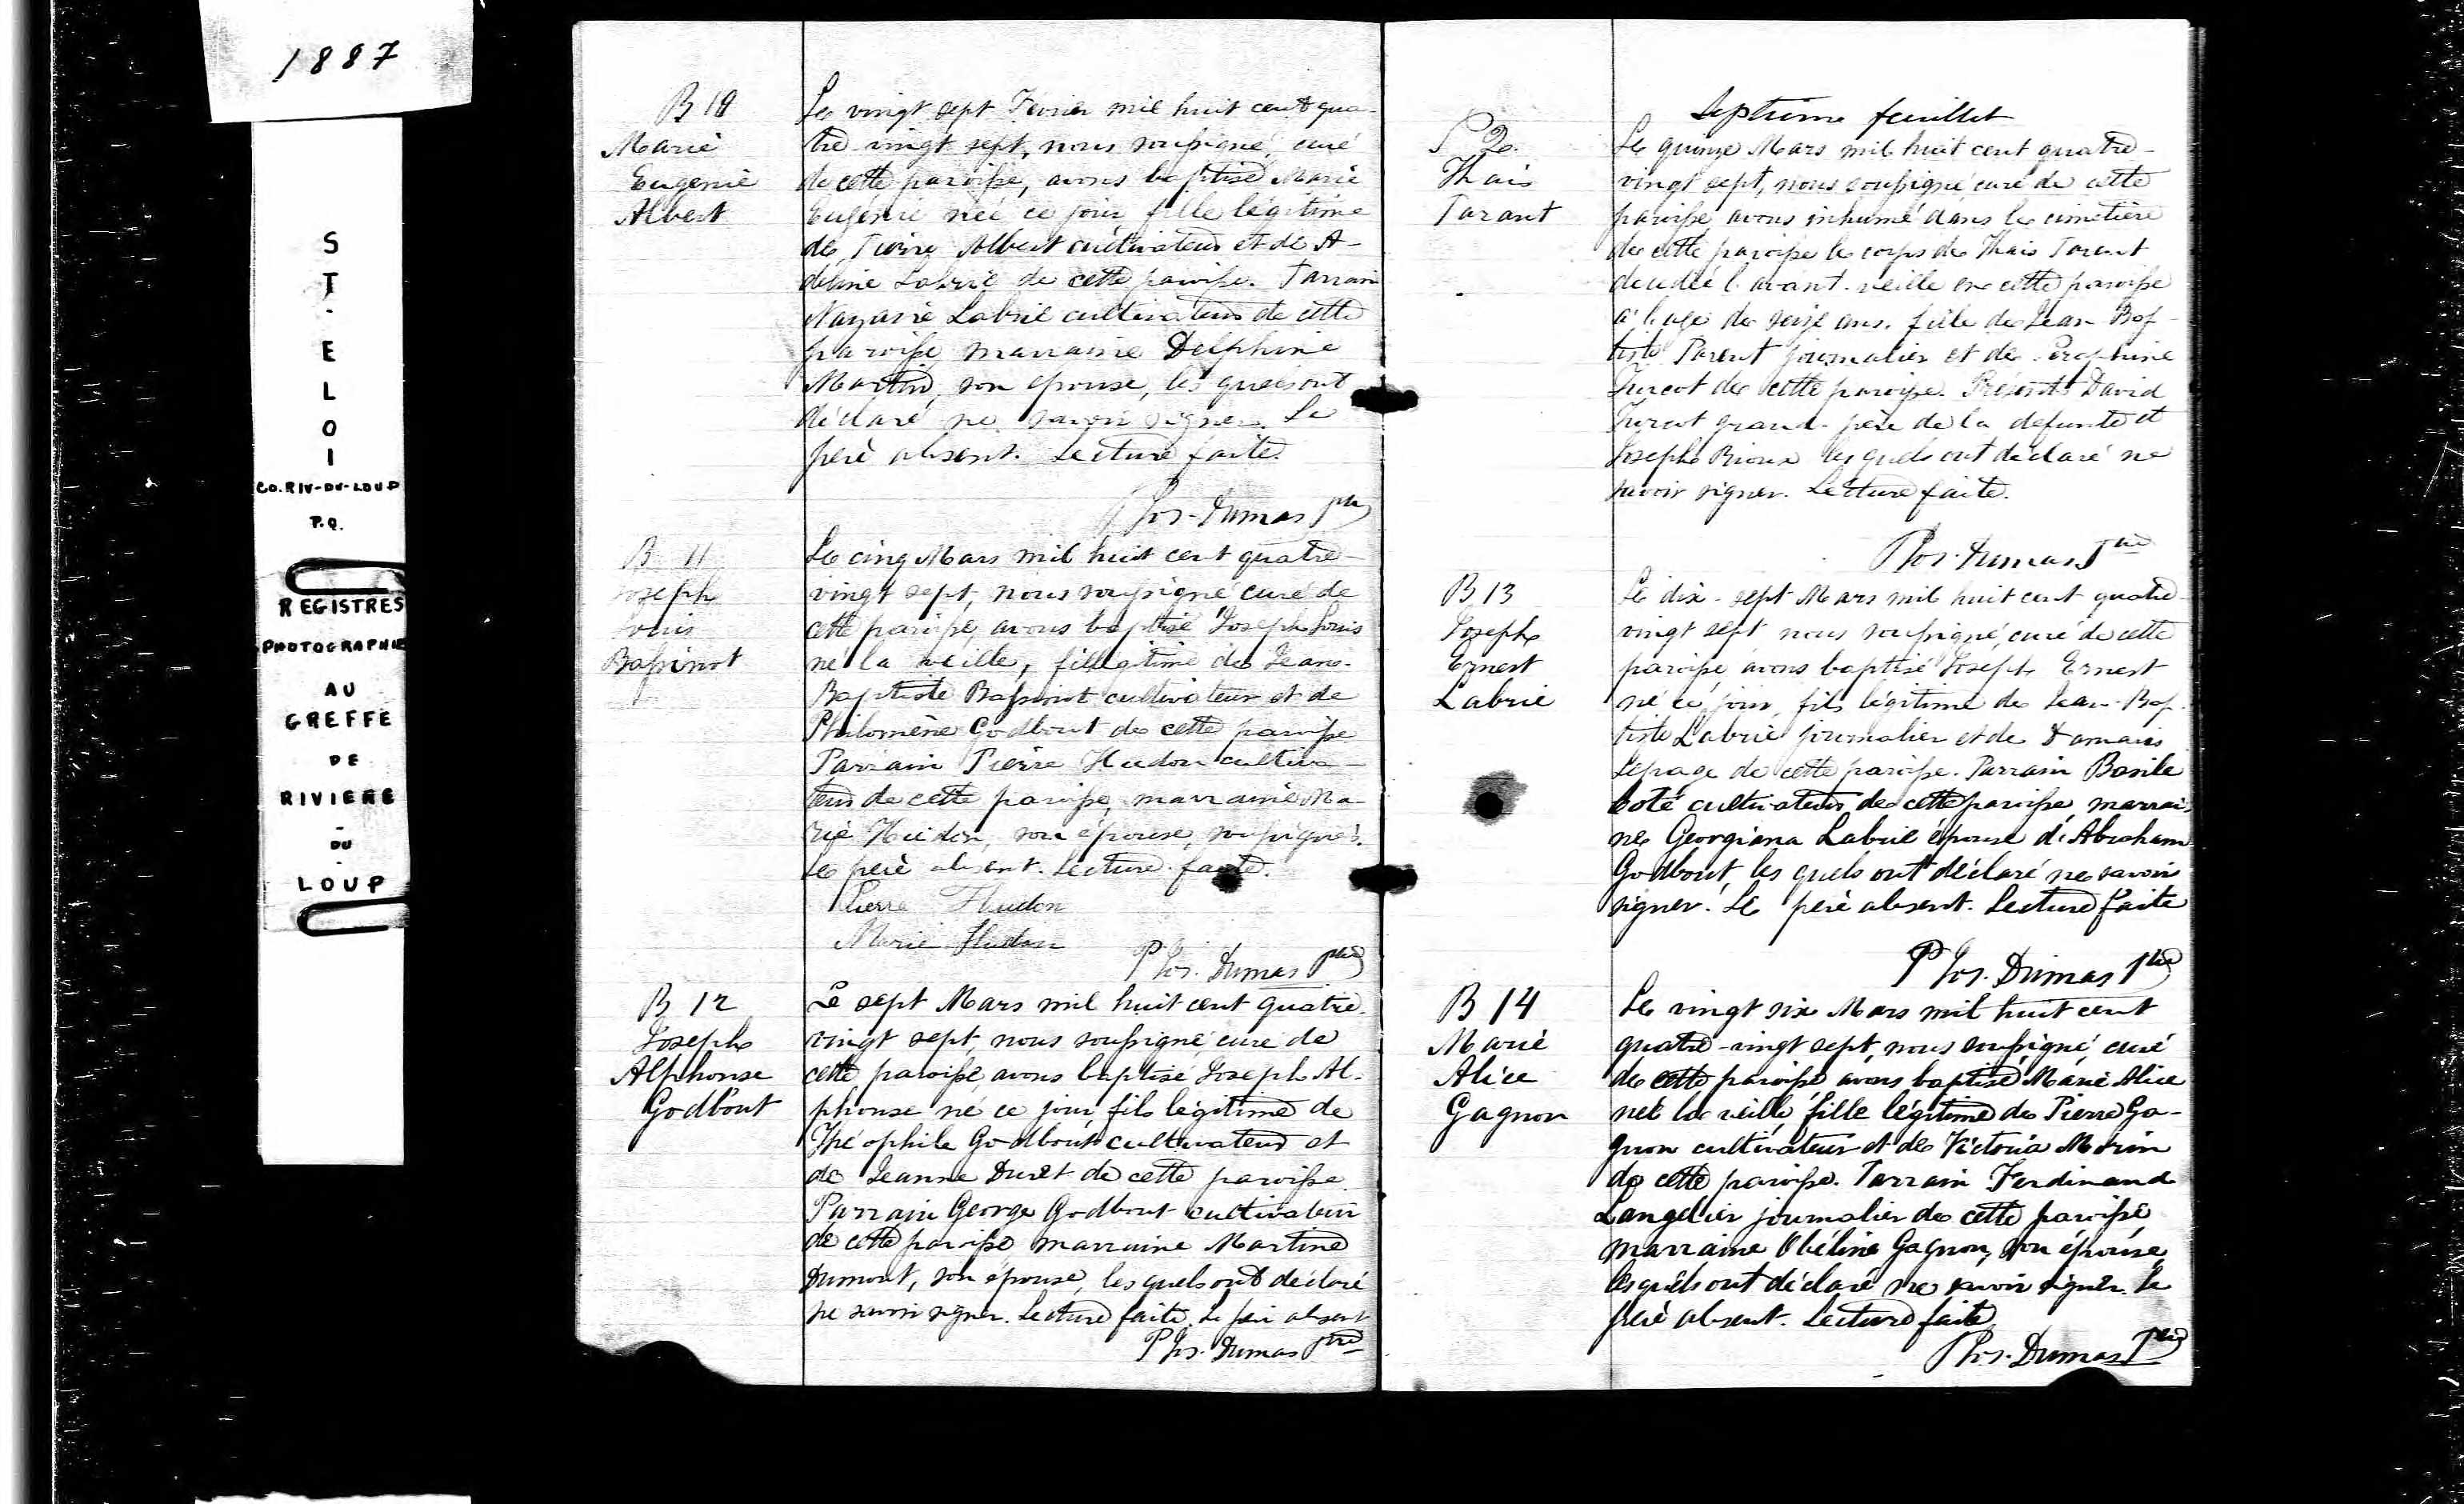 1887
S
T.
E
L
O
I
CO. RIV-DU-LOUP
P.Q.
REGISTRES
PHOTOGRAPHIE
AU
GREFFE
DE
RIVIERE
-
DU
-
LOUP
B 10
Marie
Eugenie
Albert
Le vingt sept Fevrier mil huit cent qua-
tre-vingt sept, nous soussigné, curé
de cette paroisse, avons baptisé Marie
Eugénie née ce jour fille légitime
de Pierre Albert cultivateur et de A-
deline Labrie de cette paroisse. Parrain
Nazaire Labrie cultivateur de cette
paroisse marraine Delphine
Martin, son épouse, les quels ont
déclaré ne savoir signer. Le
père absent. Lecture faite.
P Jos. Dumas Ptre
B 11
Joseph
Louis
Bassinot
Le cinq Mars mil huit cent quatre-
vingt sept, nous soussigné curé de
cette paroisse avons baptisé Joseph Louis
né la veille, fils légitime de Jean-
Baptiste Bassinot cultivateur et de
Philomène Godbout de cette paroisse
Parrain Pierre Hudon cultiva-
teur de cette paroisse, marraine Ma-
rie Hudon, son épouse, soussignés.
Le père absent. Lecture faite.
Pierre Hudon
Marie Hudon
P Jos. Dumas Ptre
B 12
Joseph
Alphonse
Godbout
Le sept Mars mil huit cent quatre-
vingt sept, nous soussigné, curé de
cette paroisse, avons baptisé Joseph Al-
phonse né ce jour, fils légitime de
Théophile Godbout cultivateur et
de Jeanne Duret de cette paroisse.
Parrain George Godbout cultivateur
de cette paroisse marraine Martine
Dumont, son épouse, les quels ont déclaré
ne savoir signer. Lecture faite. Le père absent
P Jos. Dumas Ptre
Septième feuillet
S 2.
Thais
Parant
Le quinze Mars mil huit cent quatre-
vingt sept, nous soussigné, curé de cette
paroisse, avons inhumé dans le cimetière
de cette paroisse le corps de Thais Parant
décédée l'avant-veille en cette paroisse
à l'age de seize ans. fille de Jean Bap-
tiste Parent journalier et de Séraphine
Turcot de cette paroisse. Présents David
Turcot grand-père de la défunte et
Joseph Rioux les quels ont déclaré ne
savoir signer. Lecture faite.
P Jos. Dumas Ptre
B 13
Joseph
Ernest
Labrie
Le dix-sept Mars mil huit cent quatre-
vingt sept nous soussigné, curé de cette
paroisse avons baptisé Joseph Ernest
né ce jour, fils légitime de Jean-Bap-
tiste Labrie journalier et de Damais
Lepage de cette paroisse. Parrain Basile
Coté cultivateur de cette paroisse, marrai-
ne Georgiana Labrie épouse d'Abraham
Godbout, les quels ont déclaré ne savoir
signer. Le père absent. Lecture faite
P Jos. Dumas Ptre
B 14
Marie
Alice
Gagnon
Le vingt six Mars mil huit cent
quatre-vingt sept, nous soussigné, curé
de cette paroisse avons baptisé Marie Alice
née la veille, fille légitime de Pierre Ga-
gnon cultivateur et de Victoria Morin
de cette paroisse. Parrain Ferdinand
Langelier journalier de cette paroisse
marraine Obéline Gagnon, son épouse,
les quels ont déclaré ne savoir signer. Le
père absent. Lecture faite.
P Jos. Dumas Ptre